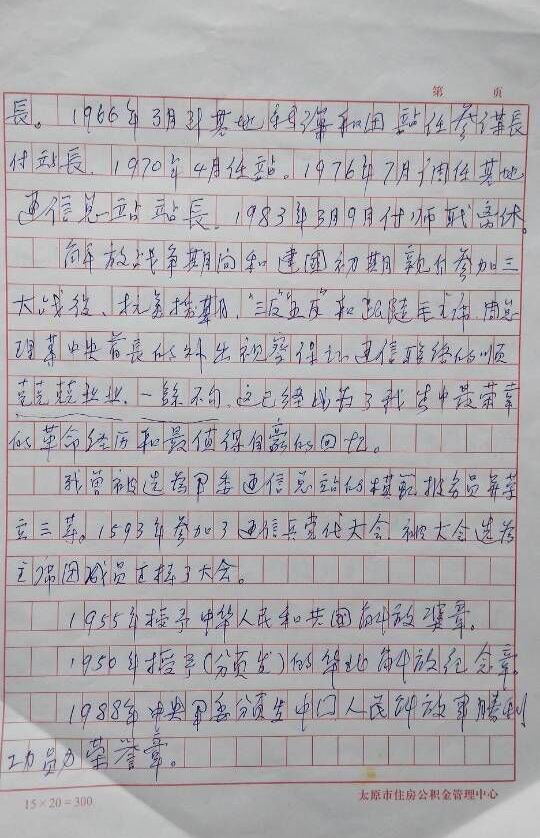 第 页
長。1966年3月到基地 和田站任参谋長
付站長、1970年4月任站。1976年7月调任基地
通信总站站長、1983年3月9月付师职离休。
解放战争期间和建國初期親付参加三
大战役、抗美援朝、“三反五反”和 随毛主席、周总
理等中央首長的外出視察保证通信联络的順
兢兢兢业业、一絲不句、这已经成为了我 生中最荣幸
的革命经历和最值得自豪的回忆。
我曾被选为甲委通信总站的模範报务员并荣
立三等。1593年参加了通信兵党代大会、被大会选为
主席团成员主持了大会。
1955年授予中华人民和共國解放奖章。
1950年授予(颁发)的华北解放纪念章。
1988年中央甲委颁发中国人民解放軍勝利
功 荣誉章。
15×20=300
太原市住房公积金管理中心